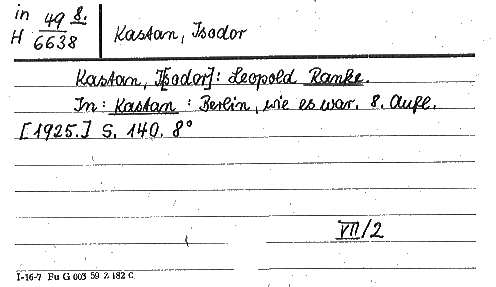 in 49 8.
H 6638
Kastan, Isodor
Kastan, I[sodor]: Leopold Ranke.
In: Kastan: Berlin, wie es war. 8. Aufl.
[1925.] S. 140. 8°
VII/2
I-16-7 Fu G 003 59 2 182 C